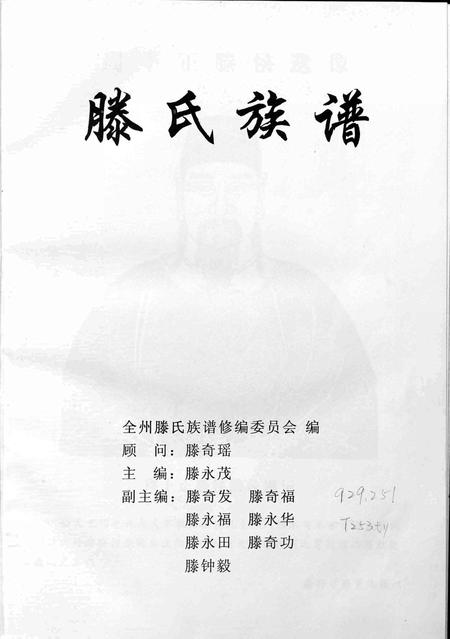 滕氏族谱
全州滕氏族谱修编委员会 编
顾 问：滕奇瑶
主 编：滕永茂
副主编：滕奇发 滕奇福
滕永福 滕永华
滕永田 滕奇功
滕钟毅
929.251
T253ty